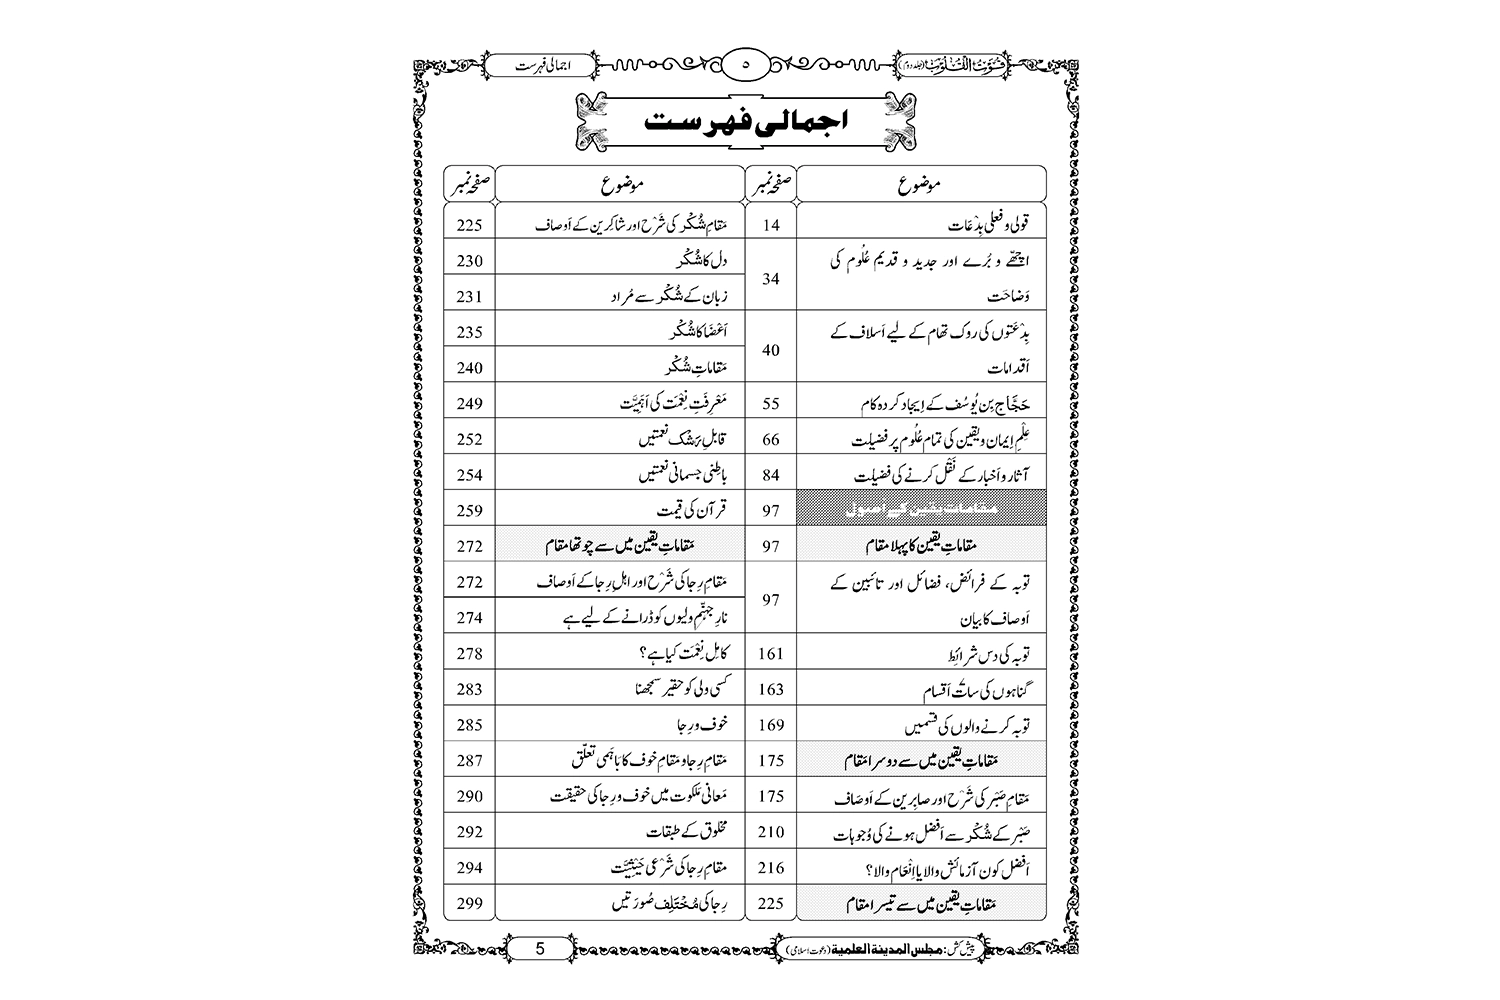 قُوْتُ الْقُلُوْب (جلد دوم)
۵
اجمالی فہرست
اجمالی فہرست
موضوع صفحہ نمبر موضوع صفحہ نمبر
قولی و فعلی بِدْعَات 14 مَقامِ شُکْر کی شَرْح اور شاکِرین کے اَوصاف 225
اچھّے و بُرے اور جدید و قدیم عُلُوم کی
وَضاحَت 34
دل کا شُکْر 230
زبان کے شُکْر سے مُراد 231
بِدْعَتوں کی روک تھام کے لیے اَسلاف کے
اَقدامات 40
اَعْضَا کا شُکْر 235
مَقاماتِ شُکْر 240
حَجَّاج بِن یُوسُف کے اِیجاد کردہ کام 55 مَعْرِفَتِ نِعْمَت کی اَہَمِیَّت 249
عِلْمِ اِیمان و یقین کی تمام عُلُوم پر فضیلت 66 قابلِ رَشْک نعمتیں 252
آثار و اَخبار کے نَقْل کرنے کی فضیلت 84 باطِنی جسمانی نعمتیں 254
مقاماتِ یقین کے اُصول 97 قرآن کی قیمت 259
مَقاماتِ یقین کا پہلا مقام 97 مَقاماتِ یقین میں سے چوتھا مقام 272
توبہ کے فرائض، فضائل اور تائبین کے
اَوصاف کا بیان 97
مَقامِ رِجا کی شَرْح اور اہلِ رِجا کے اَوصاف 272
نارِ جہنّم ولیوں کو ڈرانے کے لیے ہے 274
توبہ کی دس شرائط 161 کامِل نِعْمَت کیا ہے؟ 278
گناہوں کی سات اَقسام 163 کسی ولی کو حقیر سمجھنا 283
توبہ کرنے والوں کی قسمیں 169 خوف و رِجا 285
مَقاماتِ یقین میں سے دوسرا مَقام 175 مَقامِ رِجا و مَقامِ خوف کا بَاہَمی تعلّق 287
مَقامِ صَبْر کی شَرْح اور صابِرین کے اَوصَاف 175 مَعانی مَلکوت میں خوف و رِجا کی حقیقت 290
صَبْر کے شُکْر سے اَفضل ہونے کی وُجوہات 210 مخلوق کے طبقات 292
اَفضل کون آزمائش والا یا اِنْعَام والا؟ 216 مقامِ رِجا کی شَرْعی حَیْثِیَّت 294
مَقاماتِ یقین میں سے تیسرا مقام 225 رِجا کی مُخْتَلِف صُورَتیں 299
پیش کش: مجلس المدینۃ العلمیۃ (دعوتِ اسلامی)
5